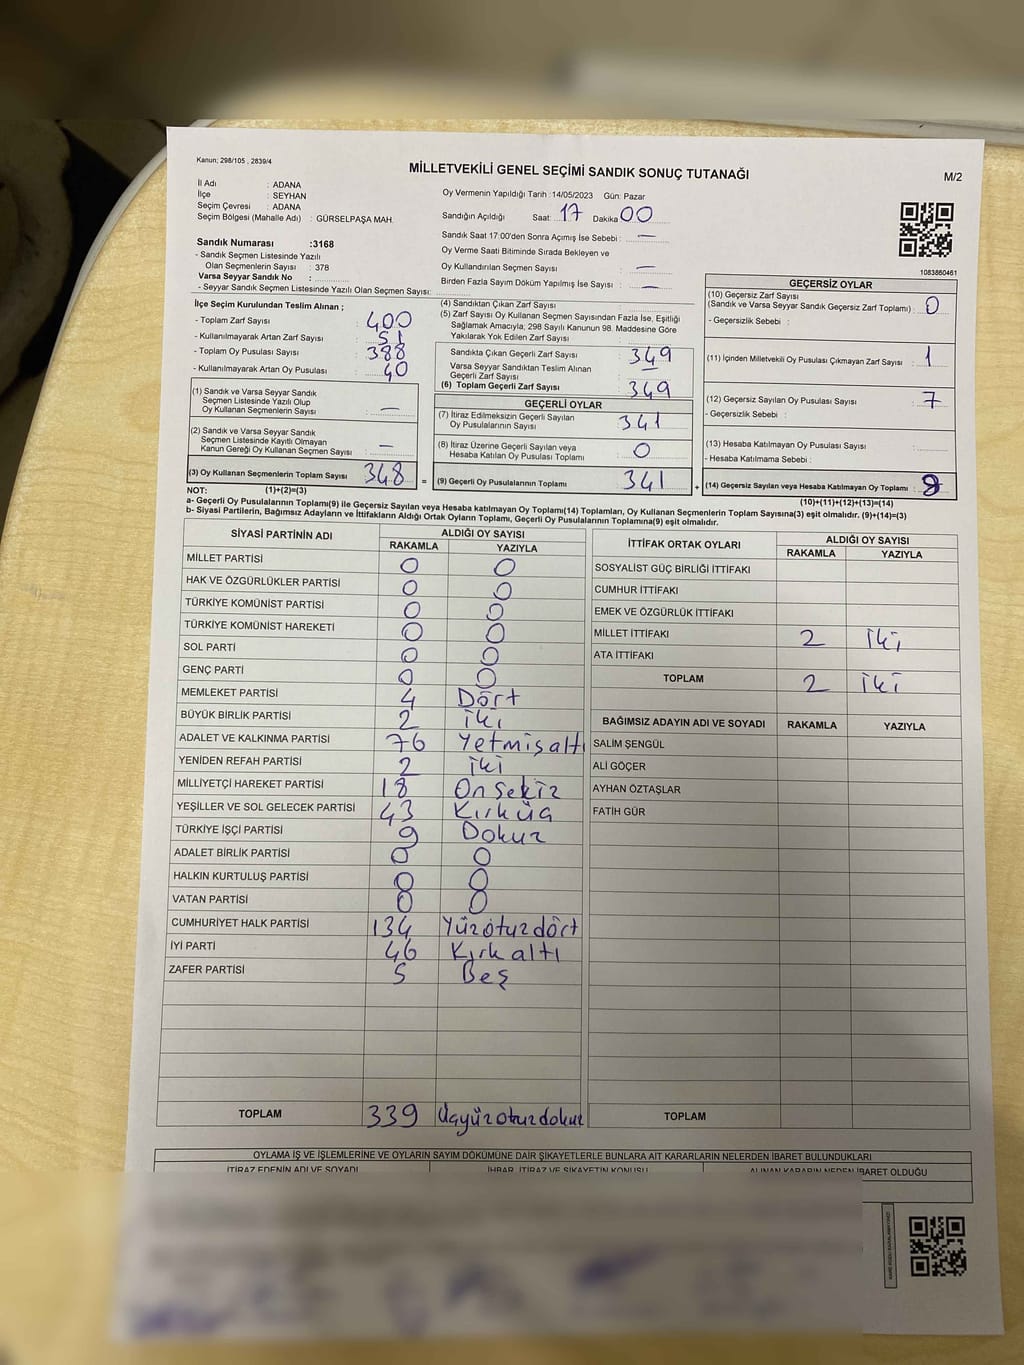 Kanun; 298/105 , 2839/4
MİLLETVEKİLİ GENEL SEÇİMİ SANDIK SONUÇ TUTANAĞI
M/2
İl Adı : ADANA
İlçe : SEYHAN
Seçim Çevresi : ADANA
Seçim Bölgesi (Mahalle Adı) : GÜRSELPAŞA MAH.
Oy Vermenin Yapıldığı Tarih :14/05/2023 Gün: Pazar
Sandığın Açıldığı Saat: 17 Dakika 00
Sandık Saat 17:00'den Sonra Açımış İse Sebebi : —
Oy Verme Saati Bitiminde Sırada Bekleyen ve
Oy Kullandırılan Seçmen Sayısı : —
Birden Fazla Sayım Döküm Yapılmış İse Sayısı : —
Sandık Numarası :3168
- Sandık Seçmen Listesinde Yazılı
Olan Seçmenlerin Sayısı : 378
Varsa Seyyar Sandık No :
- Seyyar Sandık Seçmen Listesinde Yazılı Olan Seçmen Sayısı:
1083860461
İlçe Seçim Kurulundan Teslim Alınan ;
- Toplam Zarf Sayısı : 400
- Kullanılmayarak Artan Zarf Sayısı : 51
- Toplam Oy Pusulası Sayısı : 388
- Kullanılmayarak Artan Oy Pusulası : 40
(1) Sandık ve Varsa Seyyar Sandık
Seçmen Listesinde Yazılı Olup
Oy Kullanan Seçmenlerin Sayısı : —
(2) Sandık ve Varsa Seyyar Sandık
Seçmen Listesinde Kayıtlı Olmayan
Kanun Gereği Oy Kullanan Seçmen Sayısı : —
(3) Oy Kullanan Seçmenlerin Toplam Sayısı 348 =
(4) Sandıktan Çıkan Zarf Sayısı :
(5) Zarf Sayısı Oy Kullanan Seçmen Sayısından Fazla İse, Eşitliği
Sağlamak Amacıyla; 298 Sayılı Kanunun 98. Maddesine Göre
Yakılarak Yok Edilen Zarf Sayısı :
Sandıkta Çıkan Geçerli Zarf Sayısı : 349
Varsa Seyyar Sandıktan Teslim Alınan
Geçerli Zarf Sayısı : —
(6) Toplam Geçerli Zarf Sayısı : 349
GEÇERLİ OYLAR
(7) İtiraz Edilmeksizin Geçerli Sayılan
Oy Pusulalarının Sayısı : 341
(8) İtiraz Üzerine Geçerli Sayılan veya
Hesaba Katılan Oy Pusulası Toplamı : 0
(9) Geçerli Oy Pusulalarının Toplamı 341 +
GEÇERSİZ OYLAR
(10) Geçersiz Zarf Sayısı
(Sandık ve Varsa Seyyar Sandık Geçersiz Zarf Toplamı) : 0
- Geçersizlik Sebebi :
(11) İçinden Milletvekili Oy Pusulası Çıkmayan Zarf Sayısı : 1
(12) Geçersiz Sayılan Oy Pusulası Sayısı : 7
- Geçersizlik Sebebi :
(13) Hesaba Katılmayan Oy Pusulası Sayısı :
- Hesaba Katılmama Sebebi :
(14) Geçersiz Sayılan veya Hesaba Katılmayan Oy Toplamı :
NOT: (1)+(2)=(3) (10)+(11)+(12)+(13)=(14)
a- Geçerli Oy Pusulalarının Toplamı(9) ile Geçersiz Sayılan veya Hesaba katılmayan Oy Toplamı(14) Toplamları, Oy Kullanan Seçmenlerin Toplam Sayısına(3) eşit olmalıdır. (9)+(14)=(3)
b- Siyasi Partilerin, Bağımsız Adayların ve İttifakların Aldığı Ortak Oyların Toplamı, Geçerli Oy Pusulalarının Toplamına(9) eşit olmalıdır.
SİYASİ PARTİNİN ADI ALDIĞI OY SAYISI
RAKAMLA YAZIYLA
MİLLET PARTİSİ 0 0
HAK VE ÖZGÜRLÜKLER PARTİSİ 0 0
TÜRKİYE KOMÜNİST PARTİSİ 0 0
TÜRKİYE KOMÜNİST HAREKETİ 0 0
SOL PARTİ 0 0
GENÇ PARTİ 0 0
MEMLEKET PARTİSİ 4 Dört
BÜYÜK BİRLİK PARTİSİ 2 iki
ADALET VE KALKINMA PARTİSİ 76 Yetmişaltı
YENİDEN REFAH PARTİSİ 2 iki
MİLLİYETÇİ HAREKET PARTİSİ 18 Onsekiz
YEŞİLLER VE SOL GELECEK PARTİSİ 43 Kırküç
TÜRKİYE İŞÇİ PARTİSİ 9 Dokuz
ADALET BİRLİK PARTİSİ 0 0
HALKIN KURTULUŞ PARTİSİ 0 0
VATAN PARTİSİ 0 0
CUMHURİYET HALK PARTİSİ 134 Yüzotuzdört
İYİ PARTİ 46 Kırkaltı
ZAFER PARTİSİ 5 Beş
TOPLAM 339 Üçyüzotuzdokuz
İTTİFAK ORTAK OYLARI ALDIĞI OY SAYISI
RAKAMLA YAZIYLA
SOSYALİST GÜÇ BİRLİĞİ İTTİFAKI
CUMHUR İTTİFAKI
EMEK VE ÖZGÜRLÜK İTTİFAKI
MİLLET İTTİFAKI 2 iki
ATA İTTİFAKI
TOPLAM 2 iki
BAĞIMSIZ ADAYIN ADI VE SOYADI RAKAMLA YAZIYLA
SALİM ŞENGÜL
ALİ GÖÇER
AYHAN ÖZTAŞLAR
FATİH GÜR
TOPLAM
OYLAMA İŞ VE İŞLEMLERİNE VE OYLARIN SAYIM DÖKÜMÜNE DAİR ŞİKAYETLERLE BUNLARA AİT KARARLARIN NELERDEN İBARET BULUNDUKLARI
İTİRAZ EDENİN ADI VE SOYADI İHBAR, İTİRAZ VE ŞİKAYETİN KONUSU ALINAN KARARIN NEDEN İBARET OLDUĞU